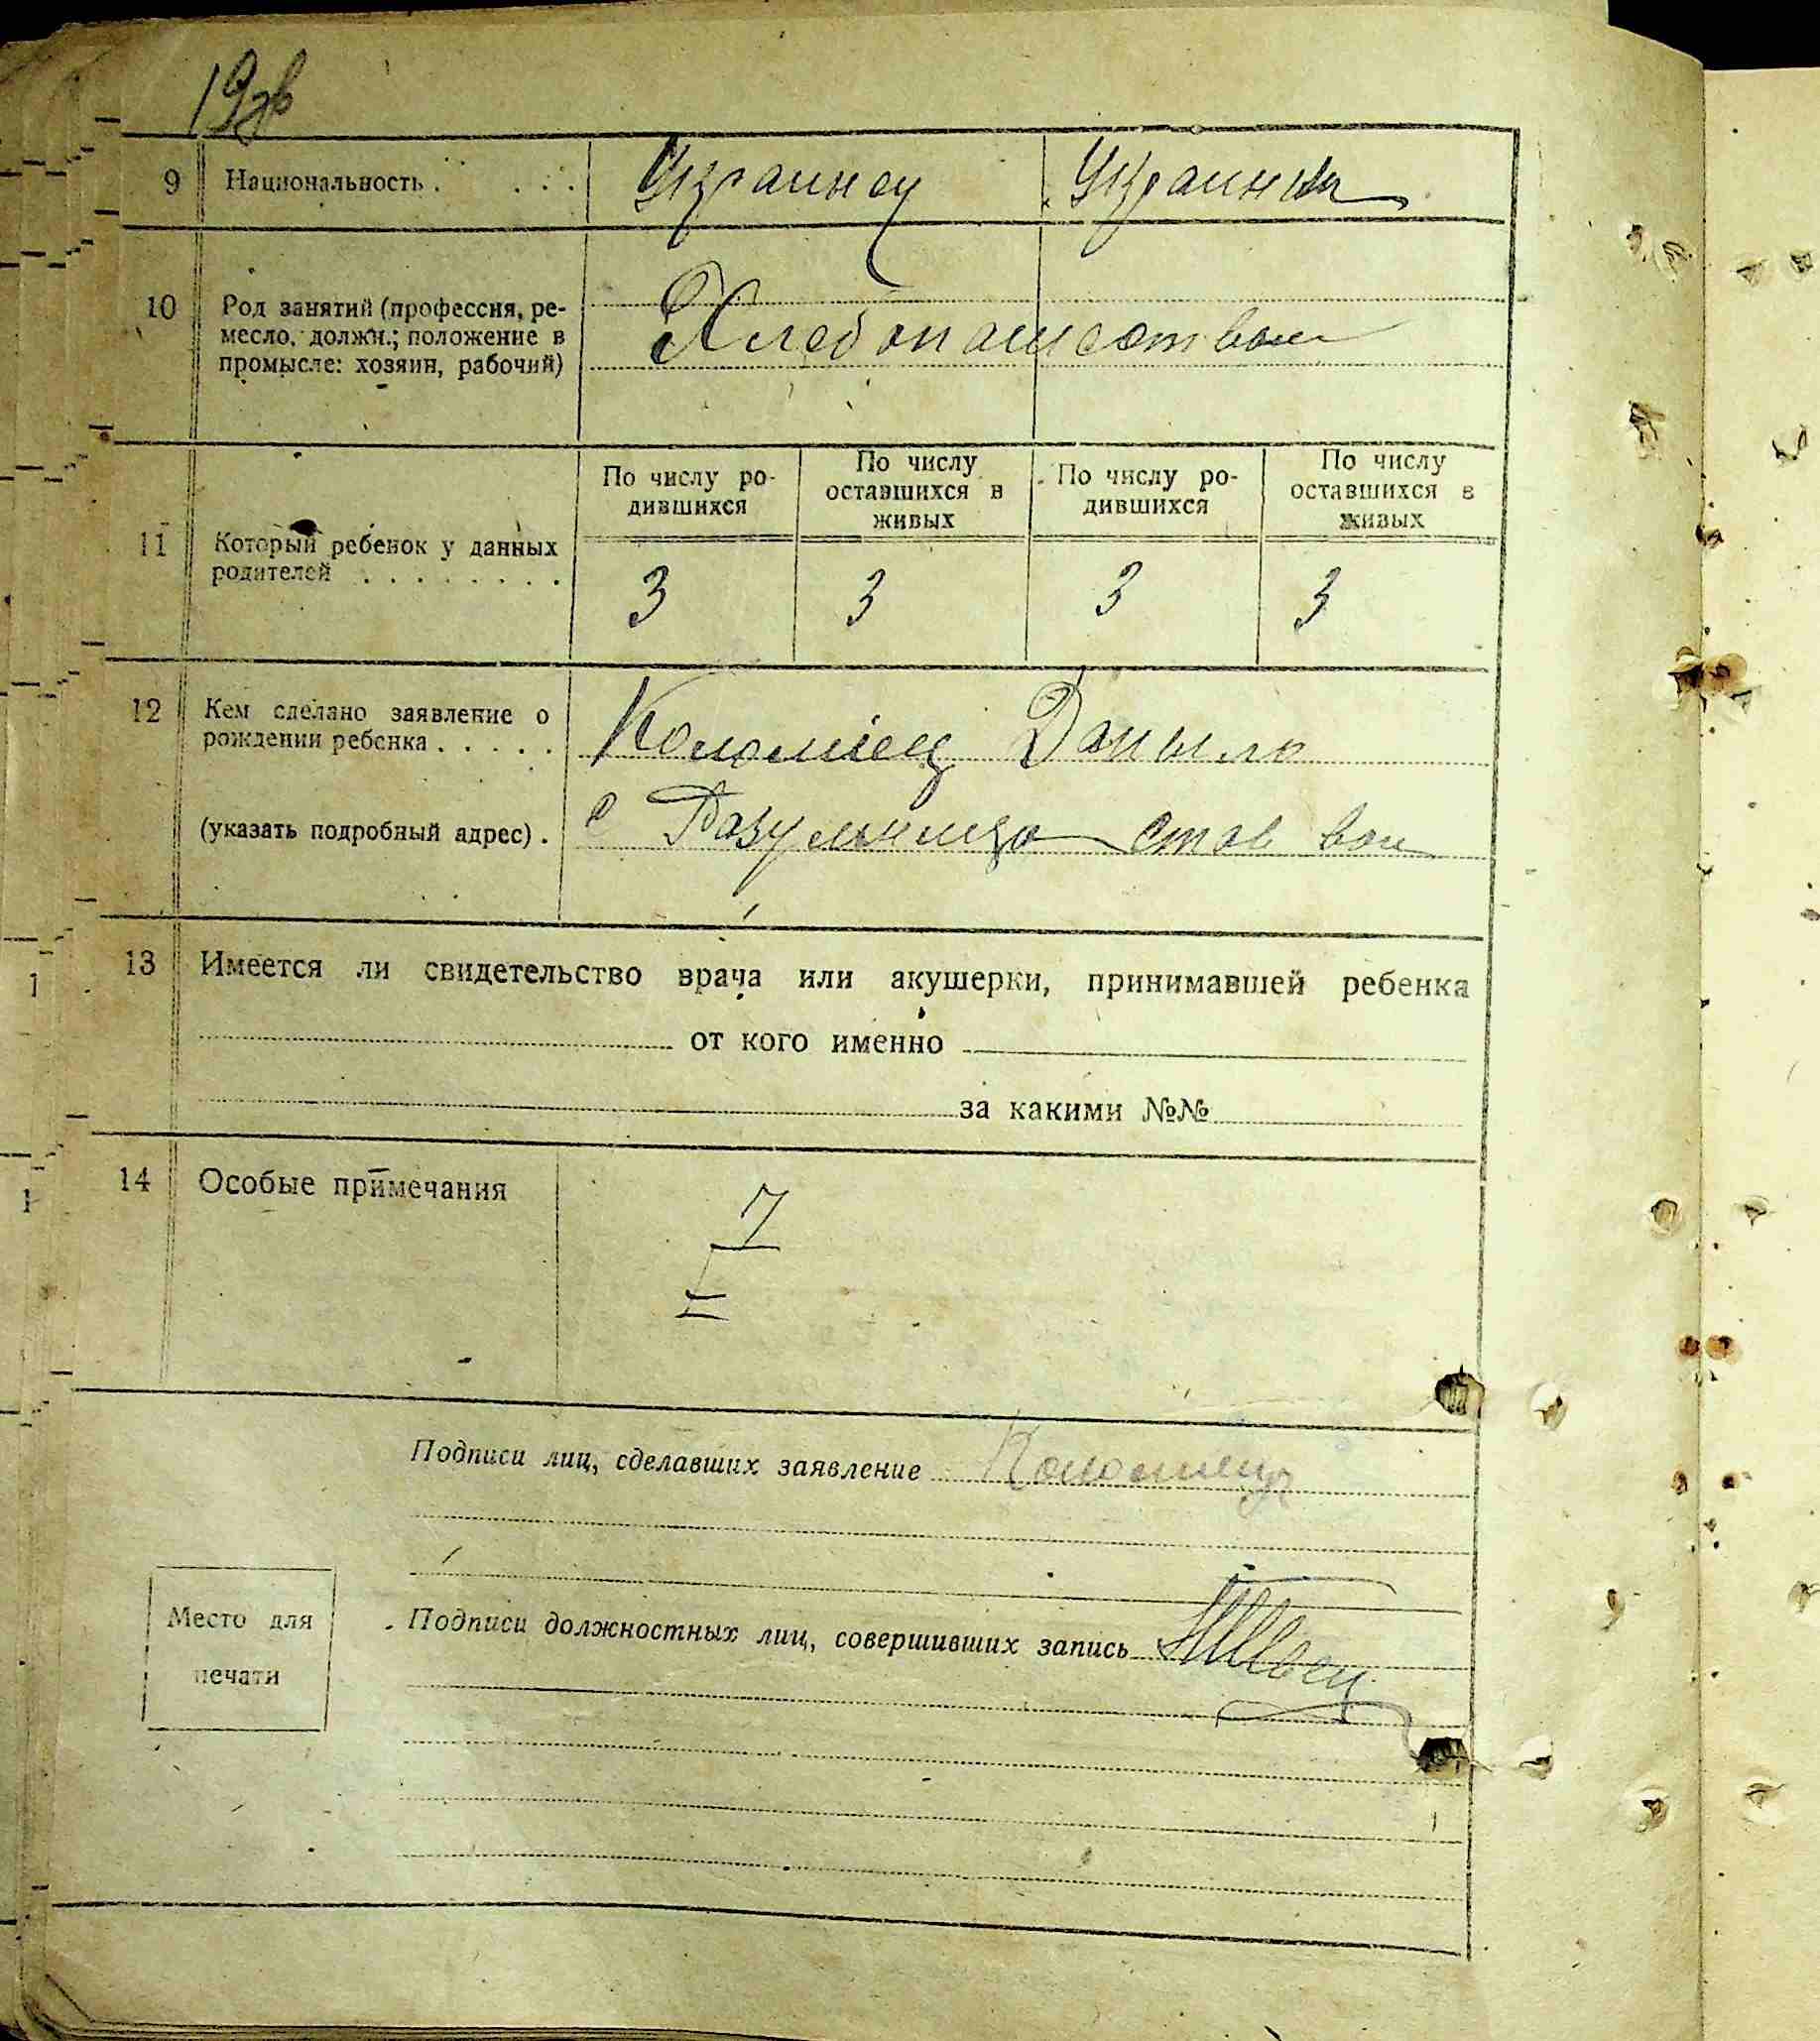 19об
9 Национальность . . . . Украинец Украинка
10 Род занятий (профессия, ре-
месло, должн.; положение в
промысле: хозяин, рабочий)
Хлебопашеством
По числу ро-
дившихся
По числу
оставшихся в
живых
По числу ро-
дившихся
По числу
оставшихся в
живых
11 Который ребенок у данных
родителей . . . . . . . .
3 3 3 3
12 Кем сделано заявление о
рождении ребенка . . . . .
Коломіец Даныло
(указать подробный адрес) . с Разумница Став вол
13 Имеется ли свидетельство врача или акушерки, принимавшей ребенка
от кого именно
за какими №№
14 Особые примечания
Подписи лиц, сделавших заявление Коломиец
Место для
печати
Подписи должностных лиц, совершивших запись Швец